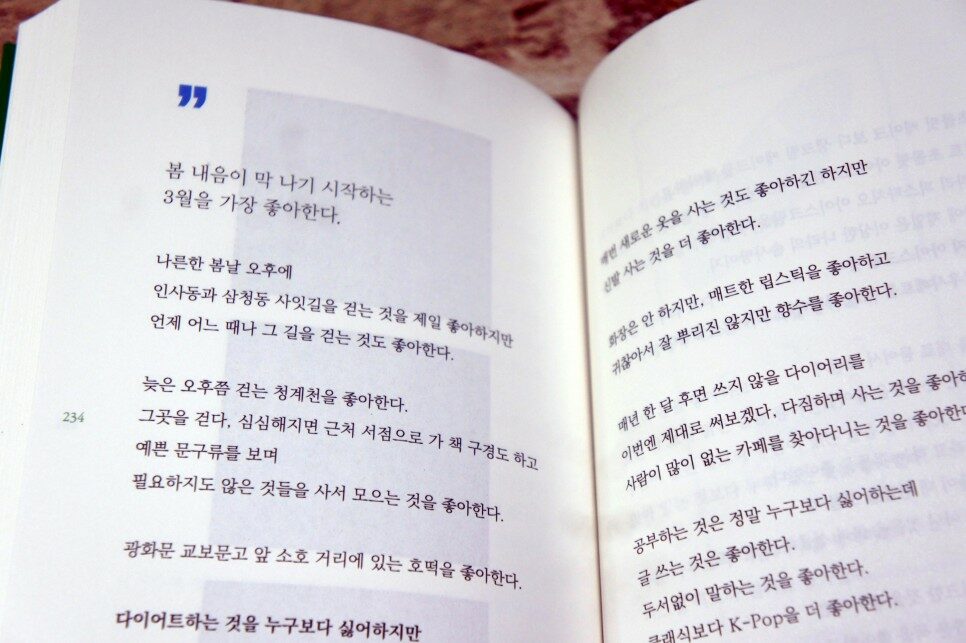 ”
봄 내음이 막 나기 시작하는
3월을 가장 좋아한다.
나른한 봄날 오후에
인사동과 삼청동 사잇길을 걷는 것을 제일 좋아하지만
언제 어느 때나 그 길을 걷는 것도 좋아한다.
늦은 오후쯤 걷는 청계천을 좋아한다.
그곳을 걷다, 심심해지면 근처 서점으로 가 책 구경도 하고
예쁜 문구류를 보며
필요하지도 않은 것들을 사서 모으는 것을 좋아한다.
광화문 교보문고 앞 소호 거리에 있는 호떡을 좋아한다.
다이어트하는 것을 누구보다 싫어하지만
234
매번 새로운 옷을 사는 것도 좋아하긴 하지만
신발 사는 것을 더 좋아한다.
화장은 안 하지만, 매트한 립스틱을 좋아하고
귀찮아서 잘 뿌리진 않지만 향수를 좋아한다.
매년 한 달 후면 쓰지 않을 다이어리를
이번엔 제대로 써보겠다, 다짐하며 사는 것을 좋아하
사람이 많이 없는 카페를 찾아다니는 것을 좋아한다
공부하는 것은 정말 누구보다 싫어하는데
글 쓰는 것은 좋아한다.
두서없이 말하는 것을 좋아한다.
클래식보다 K-Pop을 더 좋아한다.